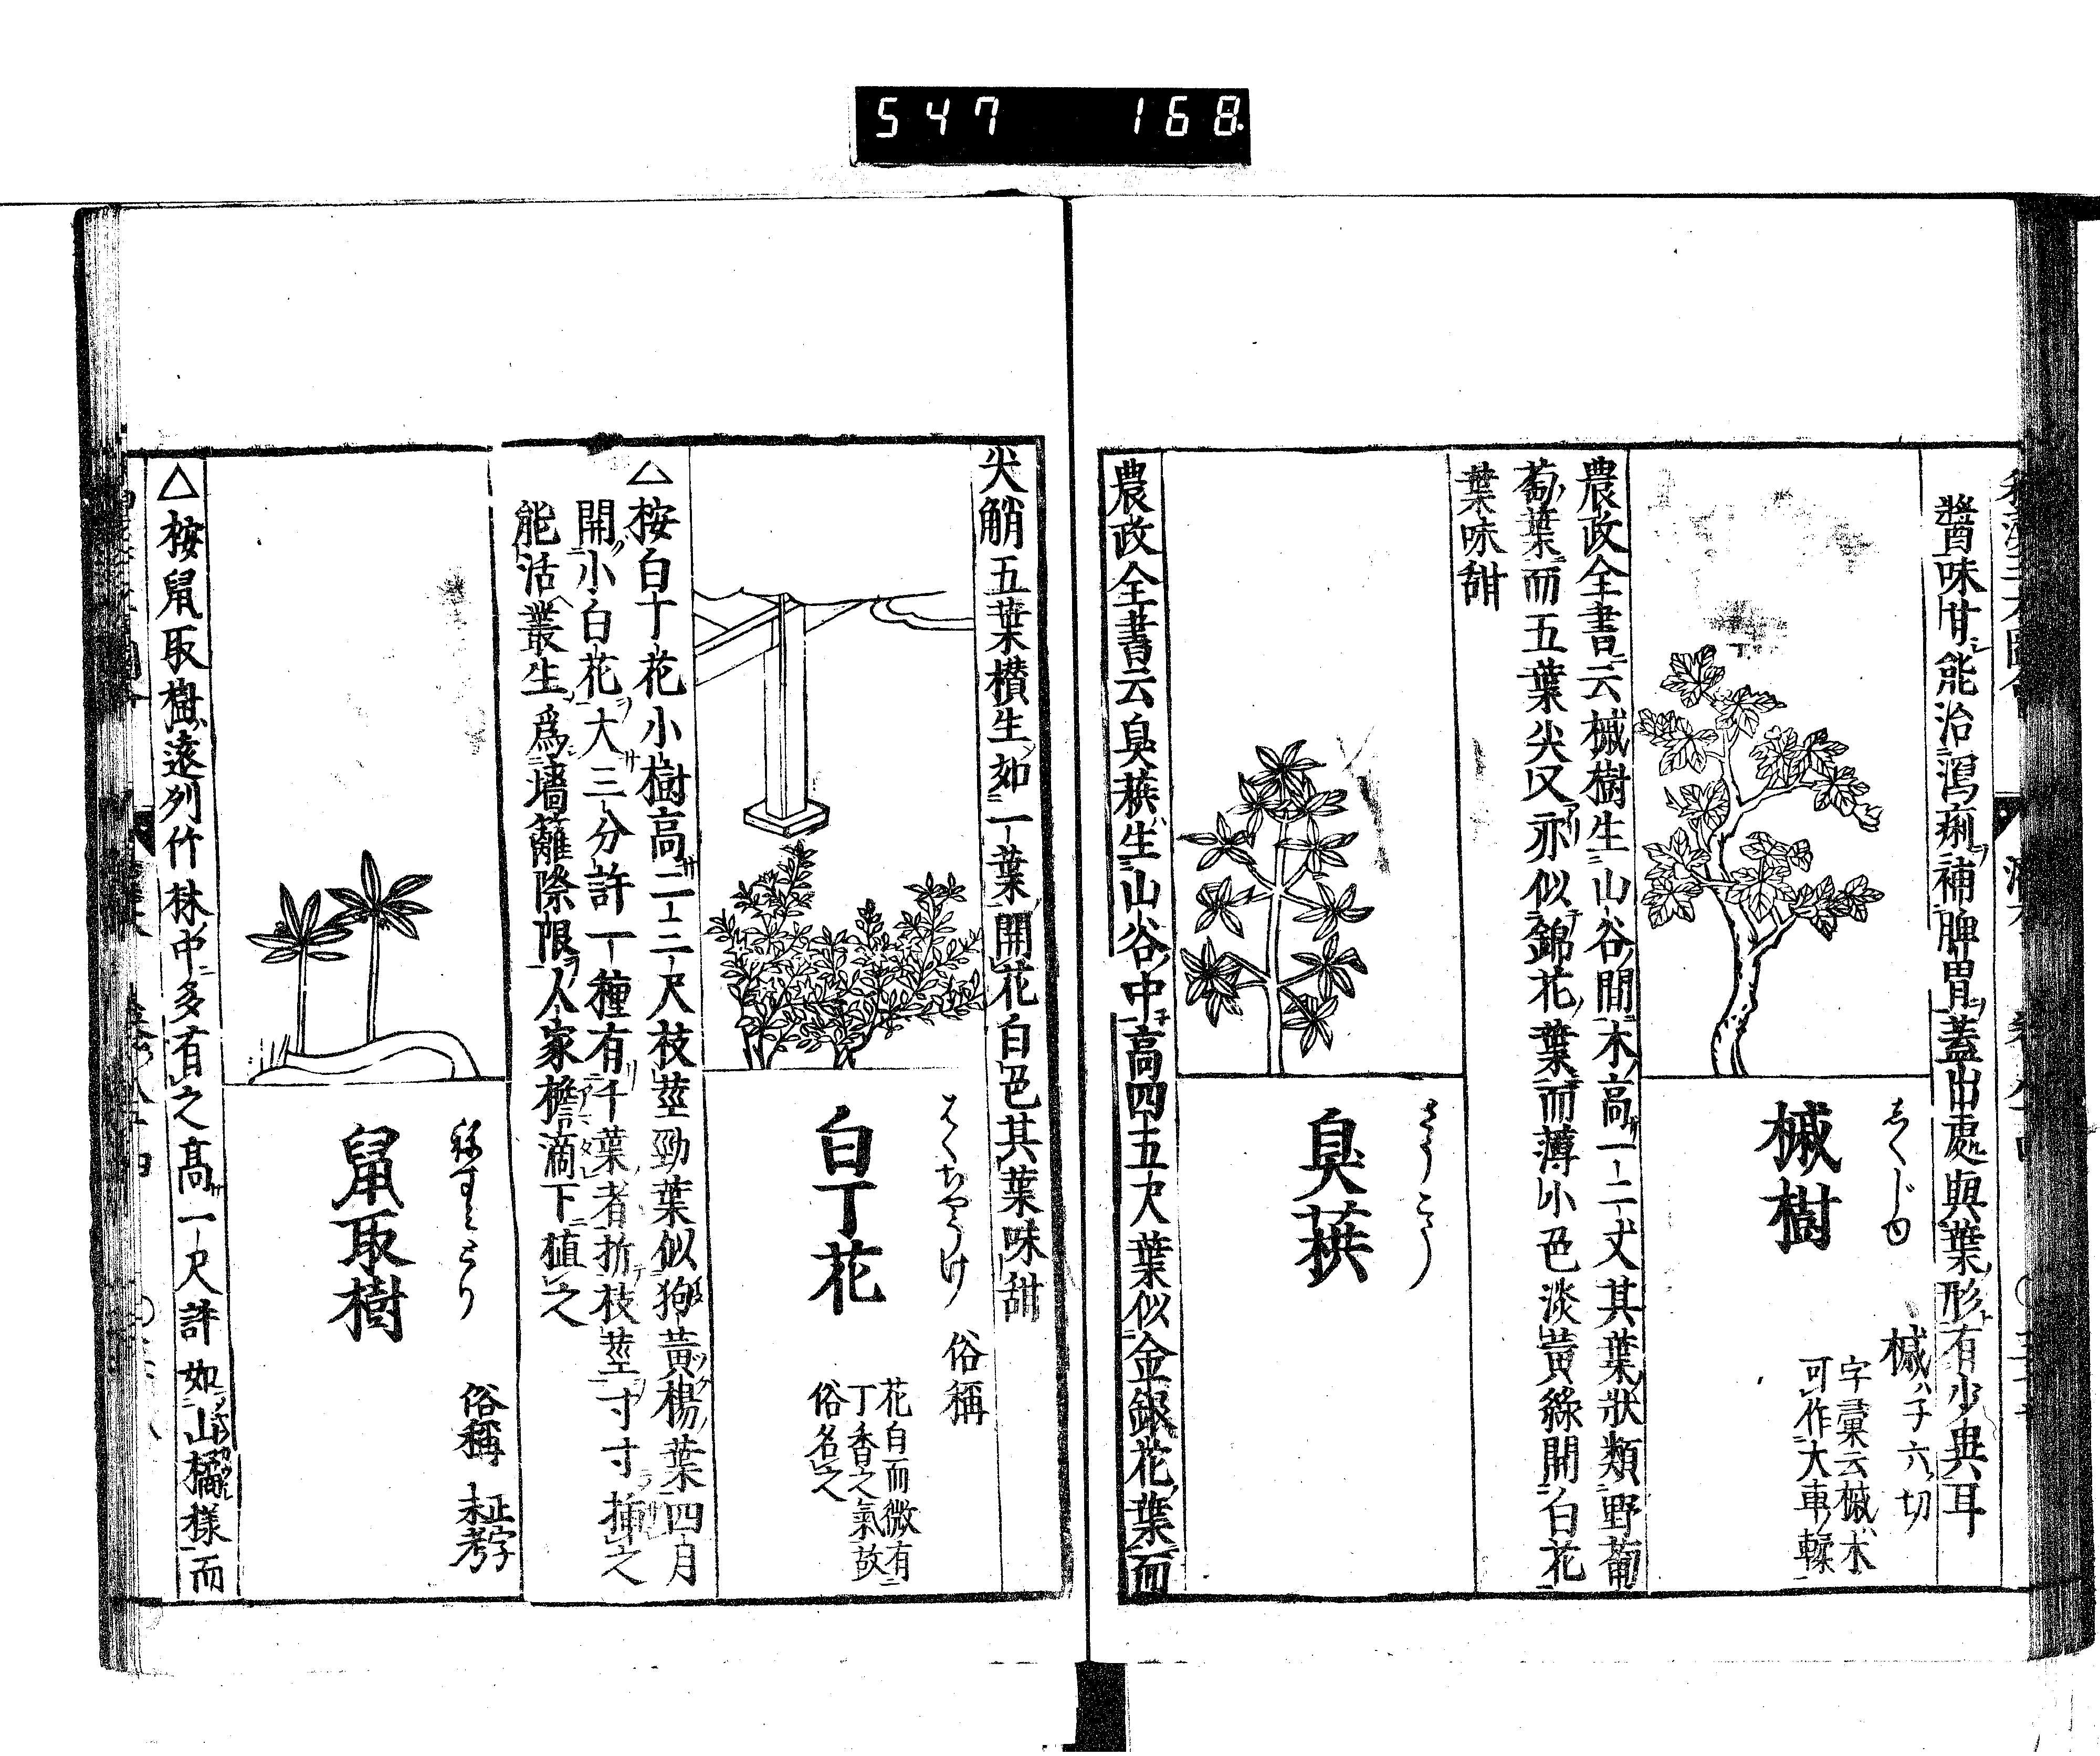 547 168
醬味甘能治瀉痢補脾胃蓋出處與葉形有少異耳
しくじゆ
槭樹
槭ハ子六ノ切
字彙云槭ハ木
可作大車ノ輮
農政全書云槭樹生山谷間木高一二丈其葉狀類野葡
萄葉而五葉尖又亦似錦花葉而薄小色淡黃綠開白花
葉味甜
さうこう
臭䕛
農政全書云臭䕛生山谷中高四五尺葉似金銀花葉而
尖艄五葉攅生如一葉開花白色其葉味甜
はくちやうけ
俗稱
白丁花
花白而微有
丁香之氣故
俗名之
△按白丁花小樹高二三尺枝莖勁葉似狗黃楊葉四月
開小白花大三分許一種有千葉者折枝莖寸寸插之
能活叢生爲墻籬際限人家檐滴下植之
ねずミとり
俗稱
正字
未考
鼠取樹
△按鼠取樹遠列竹林中多有之高一尺許如山橘樣而